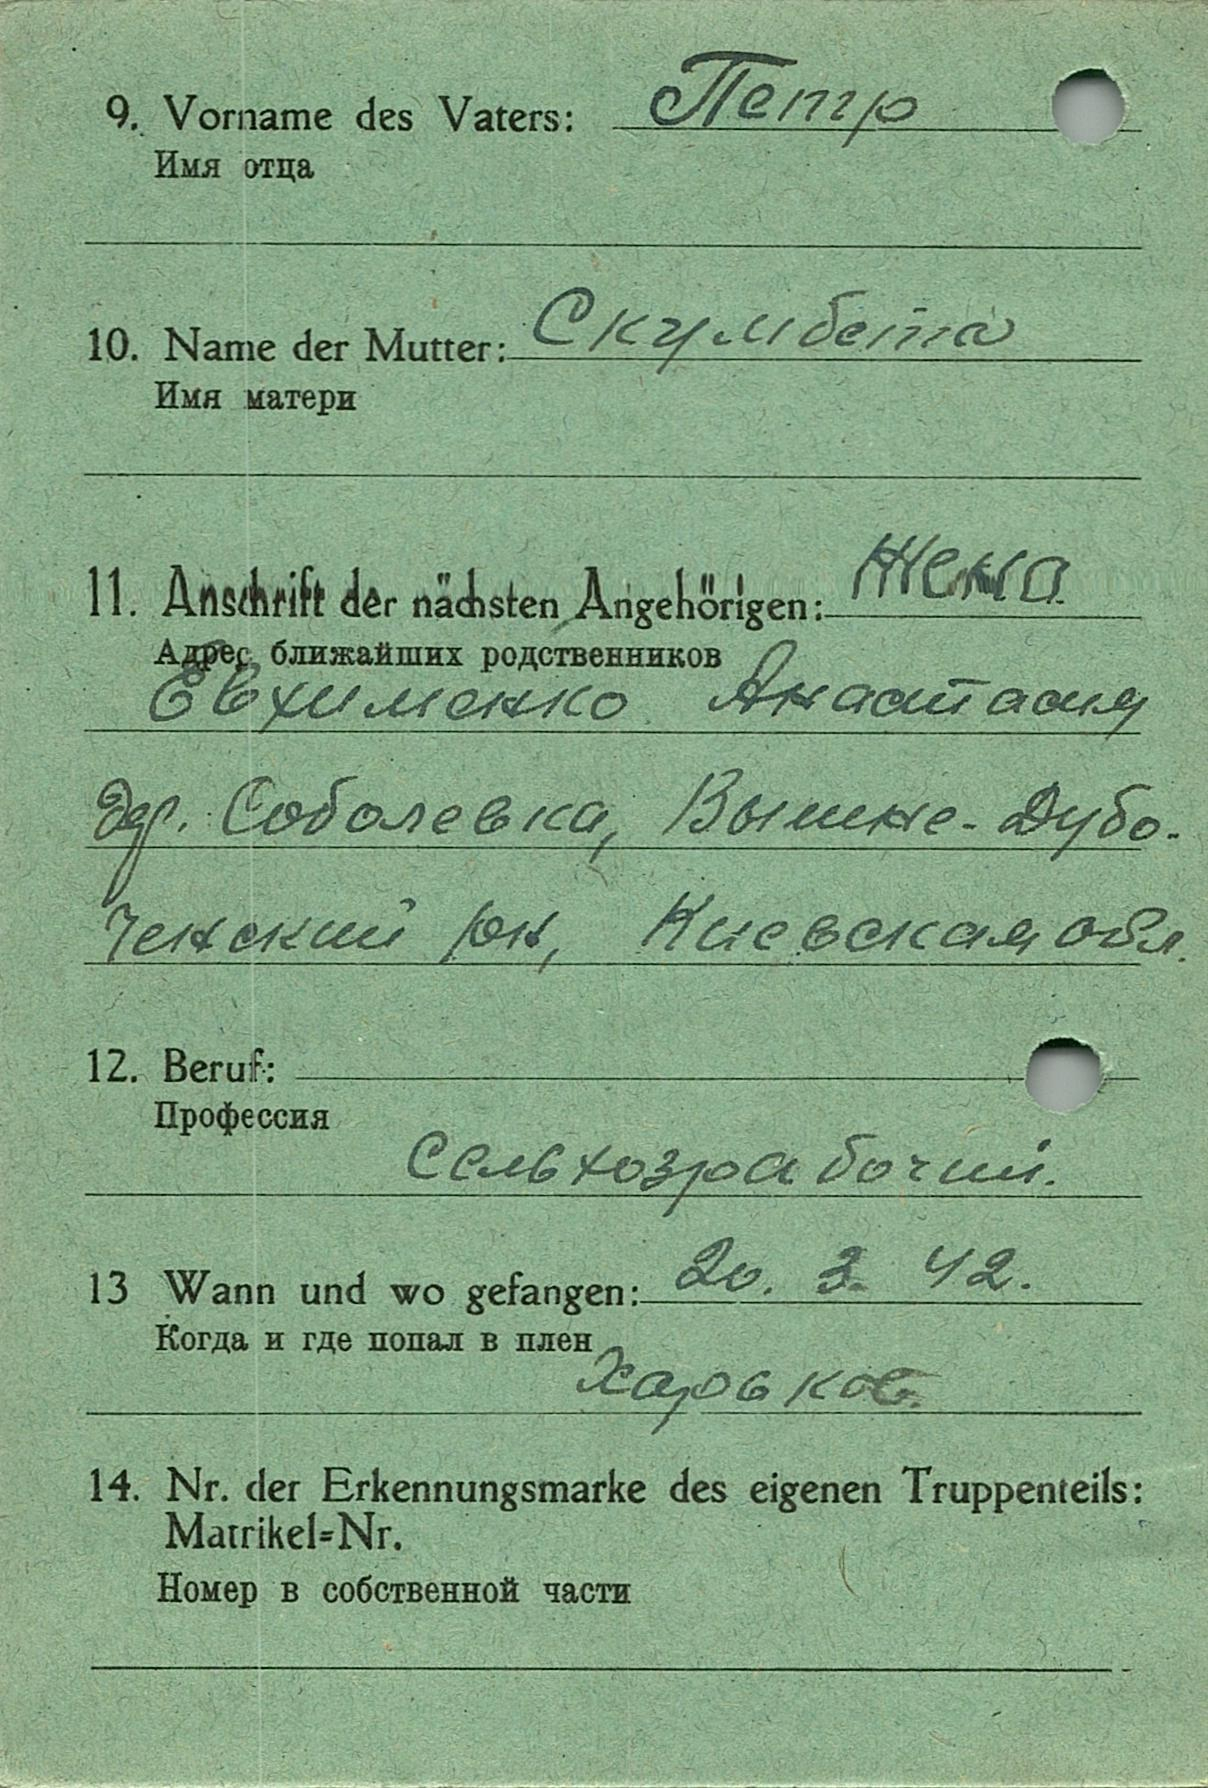 9. Vorname des Vaters: Петр
Имя отца
10. Name der Mutter: Скумбета
Имя матери
11. Anschrift der nächsten Angehörigen: Жена
Адрес ближайших родственников
Евхименко Анастасия
др. Соболевка, Вышне-Дубо-
ченский рн, Киевская обл.
12. Beruf:
Профессия
Сельхозрабочий.
13 Wann und wo gefangen: 20. 3. 42.
Когда и где попал в плен
Харьков.
14. Nr. der Erkennungsmarke des eigenen Truppenteils:
Matrikel=Nr.
Номер в собственной части